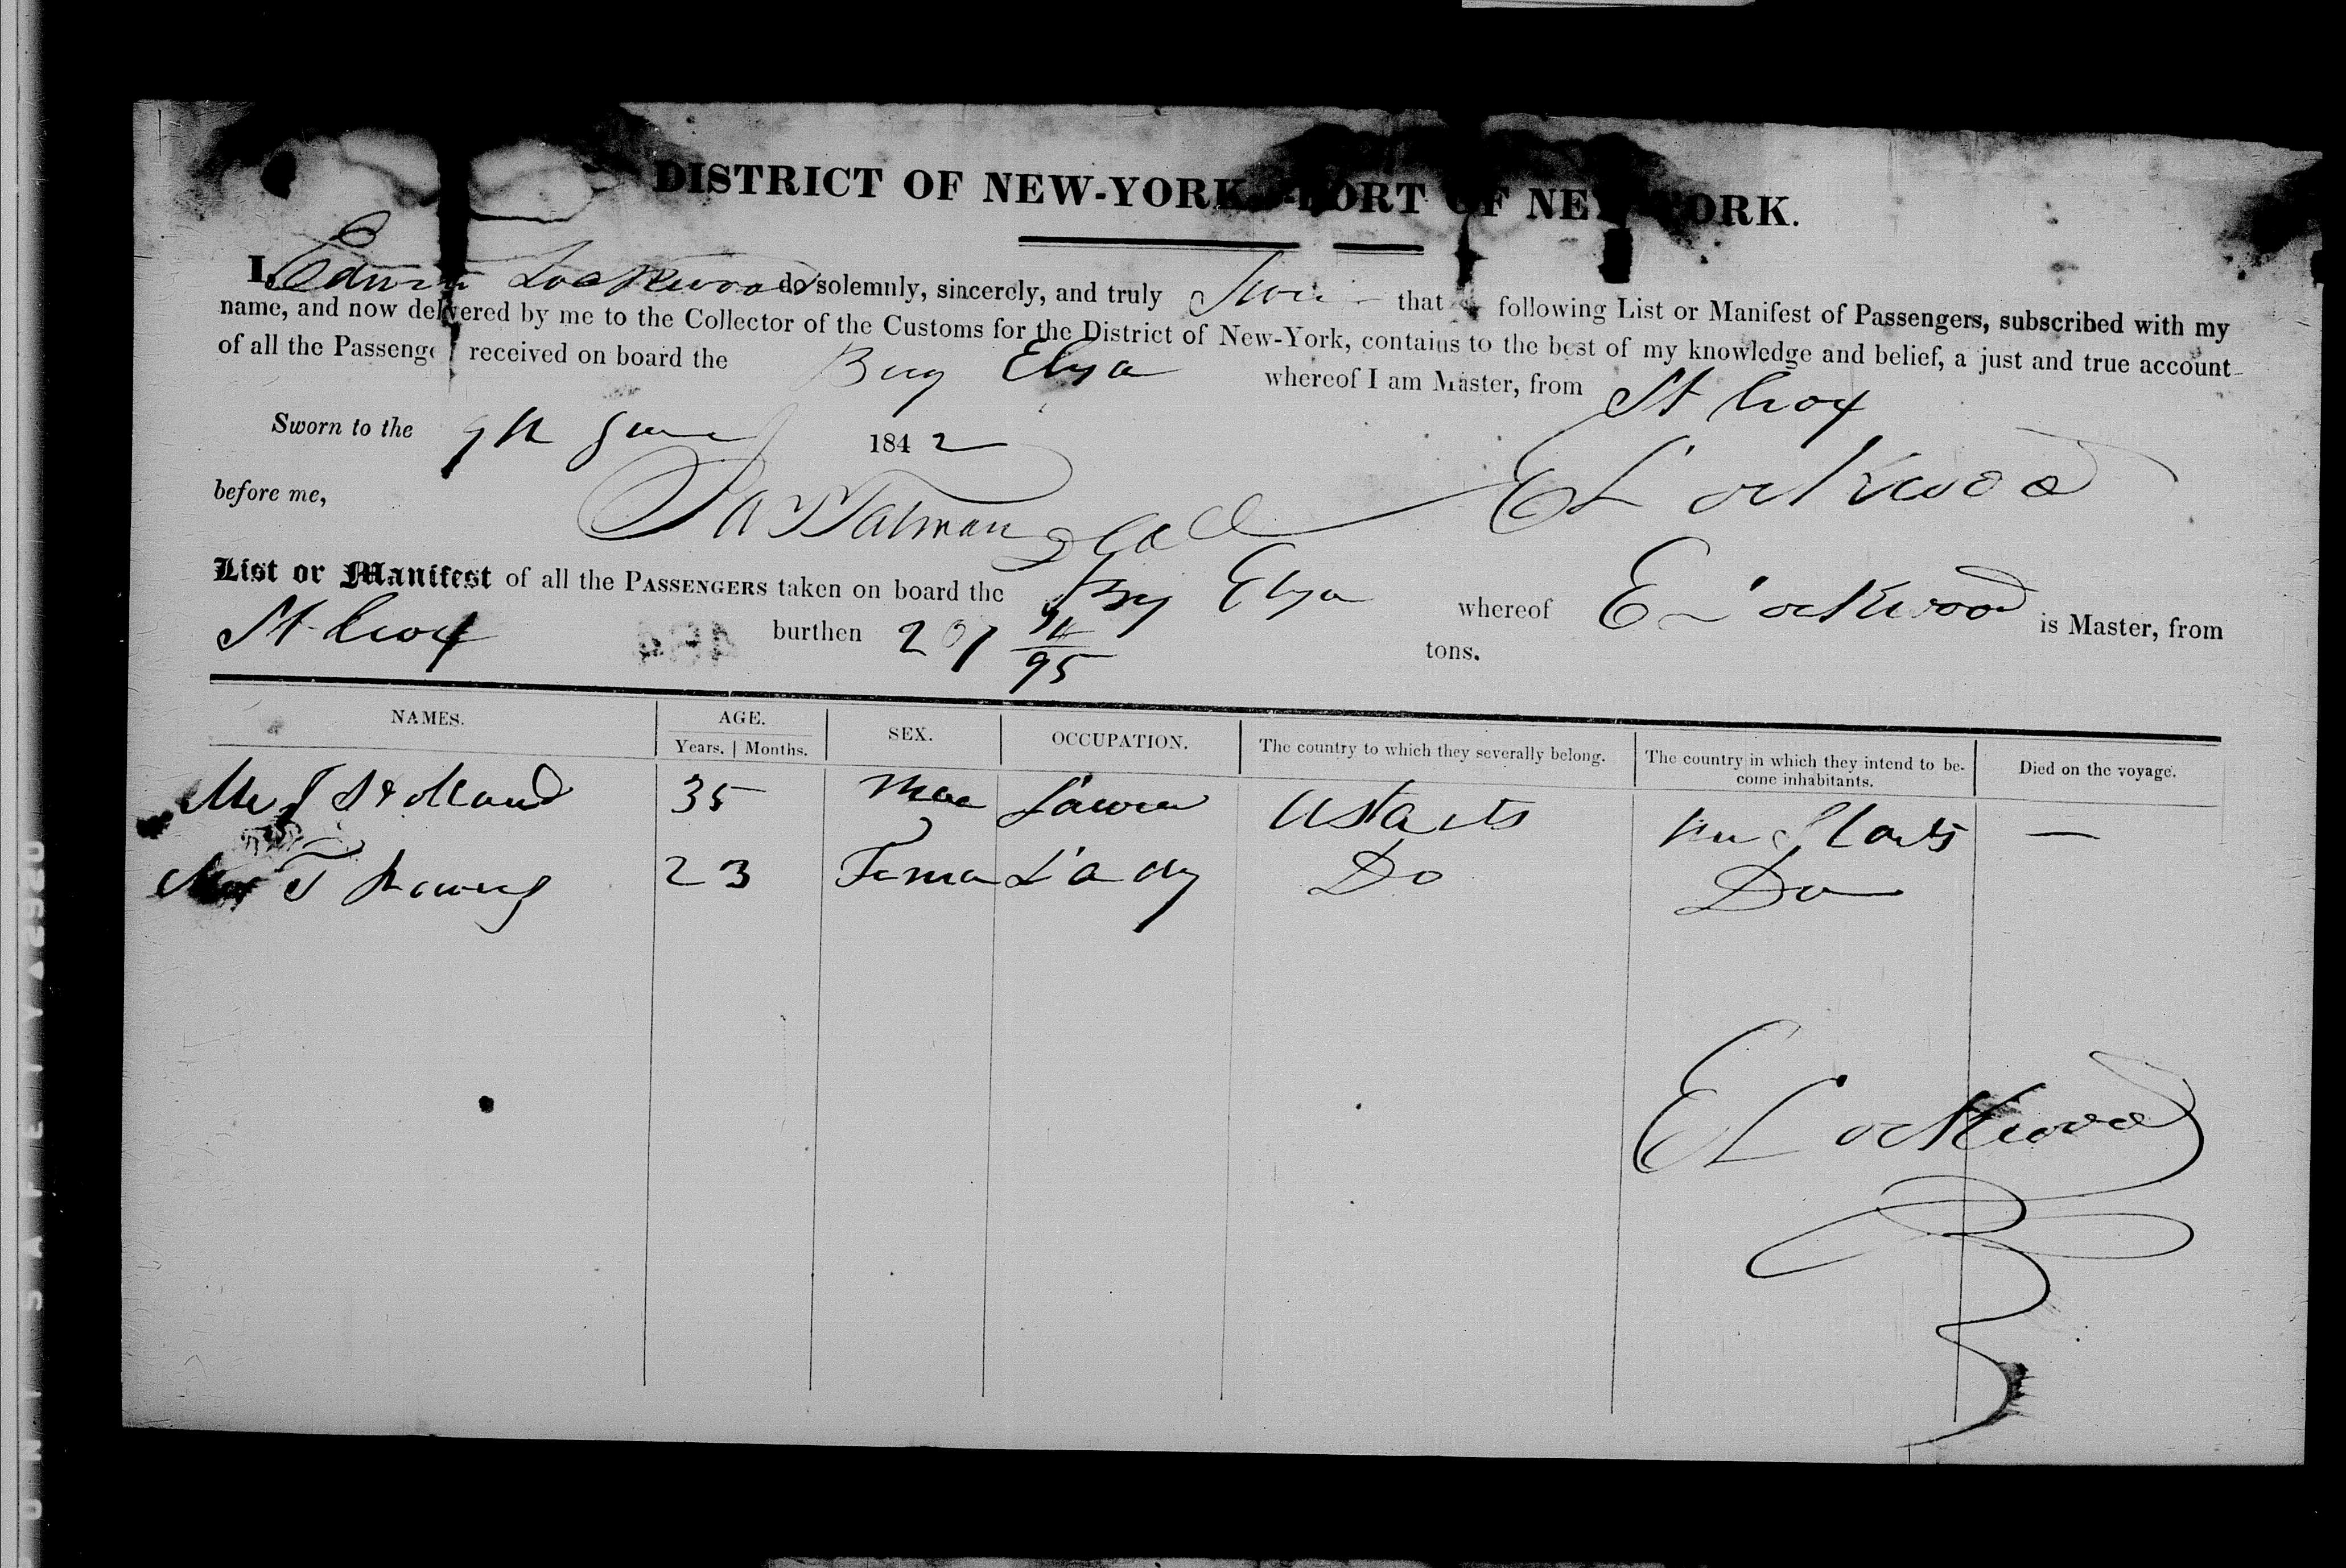 DISTRICT OF NEW-YORK, PORT OF NEW YORK.
I, Edwin Lockwood do solemnly, sincerely, and truly that following List or Manifest of Passengers, subscribed with my
name, and now delivered by me to the Collector of the Customs for the District of New-York, contains to the best of my knowledge and belief, a just and true account
of all the Passenge received on board the Brig Eliza whereof I am Master, from St Croix
Sworn to the 9th June 1842
before me, E Lockwood
List or Manifest of all the PASSENGERS taken on board the Brig Eliza whereof E Lockwood is Master, from
St Croix burthen tons.
95
NAMES. AGE. SEX. OCCUPATION. The country to which they severally belong. The country in which they intend to be- Died on the voyage.
Years. | Months. come inhabitants.
35 Ustaets —
23 Fema Lady Do Do
E Lockwood